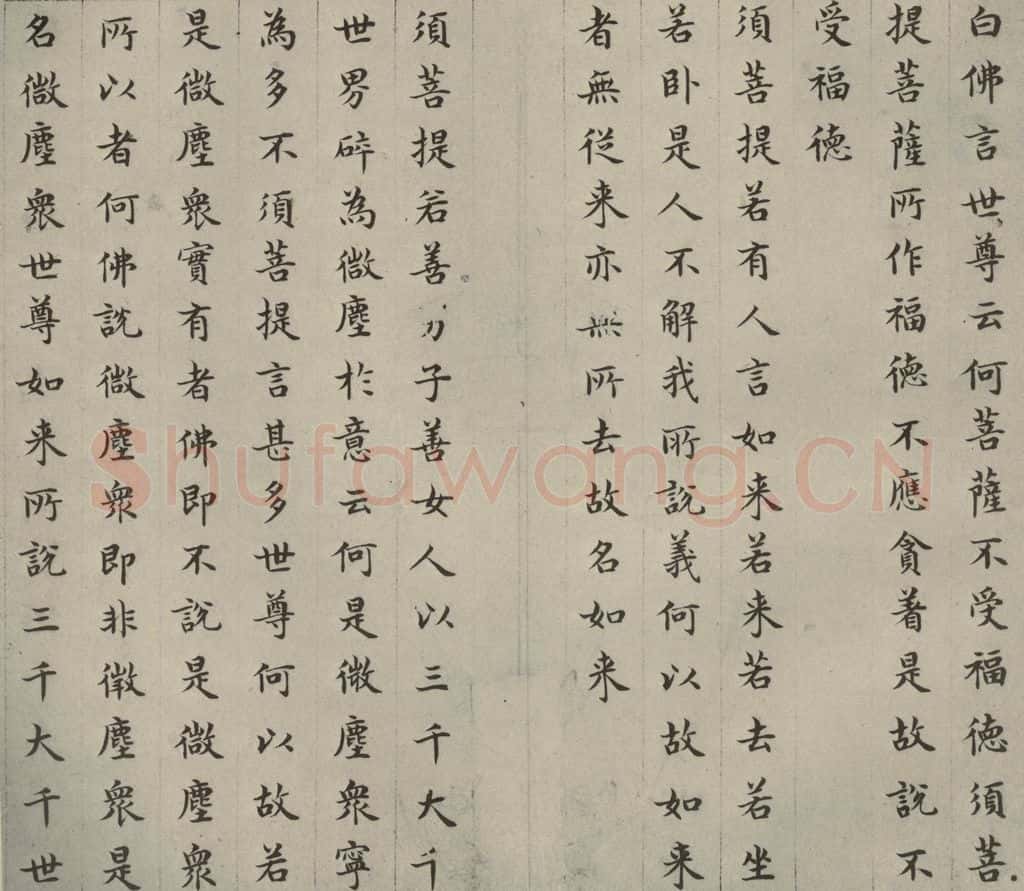 白佛言世尊云何菩薩不受福德須菩
提菩薩所作福德不應貪著是故說不
受福德
須菩提若有人言如来若来若去若坐
若卧是人不解我所說義何以故如来
者無從来亦無所去故名如来
須菩提若善男子善女人以三千大千
世界碎為微塵於意云何是微塵衆寧
為多不須菩提言甚多世尊何以故若
是微塵衆實有者佛即不說是微塵衆
所以者何佛說微塵衆即非微塵衆是
名微塵衆世尊如来所說三千大千世
Shufawang.CN